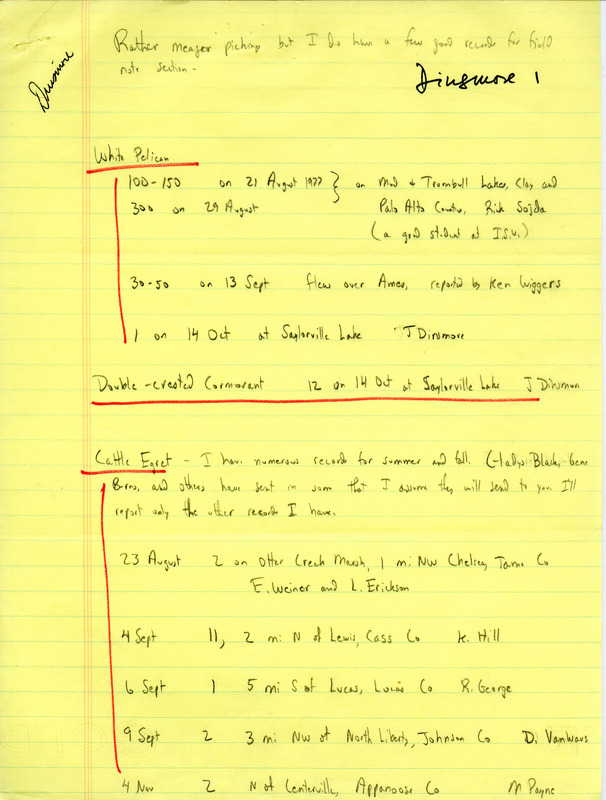 Dinsmore
Rather meager pickings but I do have a few good records for field
note section.
Dinsmore 1
White Pelican
100-150 on 21 August 1977 } on Mud & Trumbull Lakes, Clay and
300 on 29 August Palo Alto Counties, Rick Sojda
(a grad student at I.S.U.)
30-50 on 13 Sept flew over Ames, reported by Ken Wiggers
1 on 14 Oct at Saylorville Lake J Dinsmore
Double-crested Cormorant 12 on 14 Oct at Saylorville Lake J Dinsmore
Cattle Egret - I have numerous records for summer and fall. Gladys Black, Gene
Burns, and others have sent in some that I assume they will send to you. I'll
report only the other records I have.
23 August 2 on Otter Creek Marsh, 1 mi NW Chelsea, Tama Co
E. Weiner and L. Erickson
4 Sept 11, 2 mi N of Lewis, Cass Co K. Hill
6 Sept 1 5 mi S of Lucas, Lucas Co R. George
9 Sept 2 3 mi NW of North Liberty, Johnson Co D.
4 Nov 2 N of Centerville, Appanoose Co M Payne